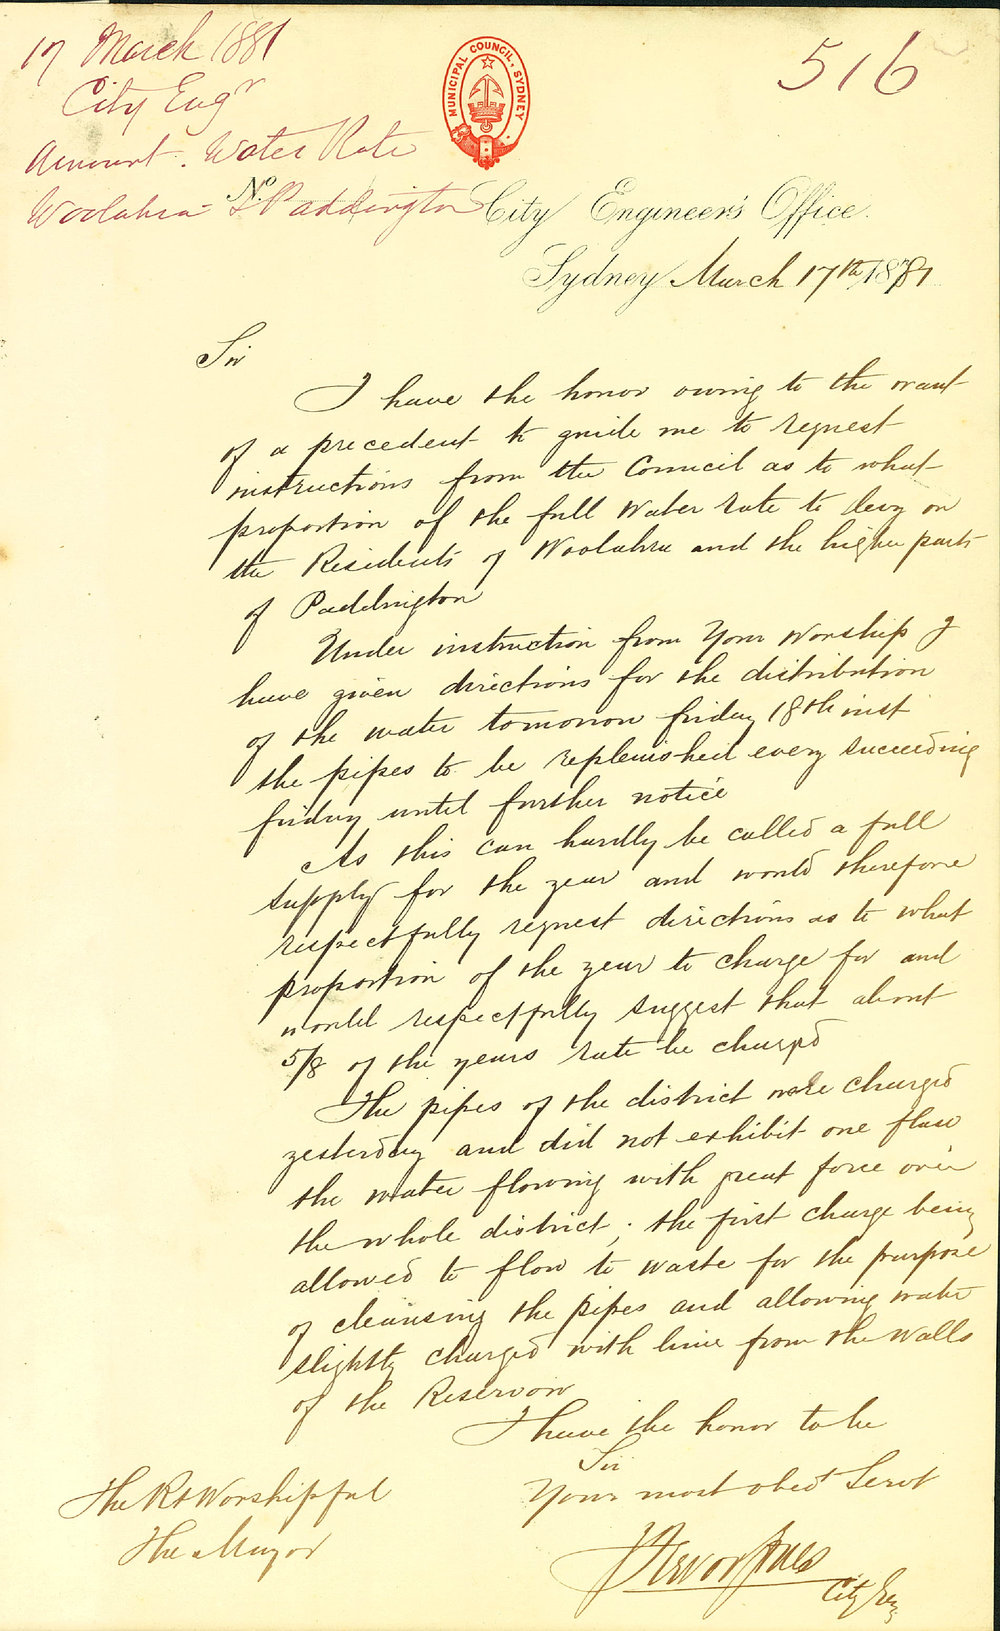 17 March 1881
516
City Engr
MUNICIPAL COUNCIL, SYDNEY
Amount. Water Rate
Woolahra & Paddington
No.
City Engineer's Office.
Sydney March 17th 1881
Sir
I have the honor owing to the want
of a precedent to guide me to request
instructions from the Council as to what
proportion of the full water rate to levy on
the Residents of Woolahra and the higher parts
of Paddington
Under instruction from Your Worship I
have given directions for the distribution
of the water tomorrow friday 18th inst
the pipes to be replenished every succeeding
friday until further notice
As this can hardly be called a full
supply for the year and would therefore
respectfully request directions as to what
proportion of the year to charge for and
would respectfully suggest that about
5/8 of the years rate be charged
The pipes of the district were charged
yesterday and did not exhibit one flaw
the water flowing with great force over
the whole district; the first charge being
allowed to flow to waste for the purpose
of cleansing the pipes and allowing water
slightly charged with lime from the walls
of the Reservoir
I have the honor to be
Sir
Your most obedt Servt
The Rt Worshipful
The Mayor
Trevor Jones
City Eng